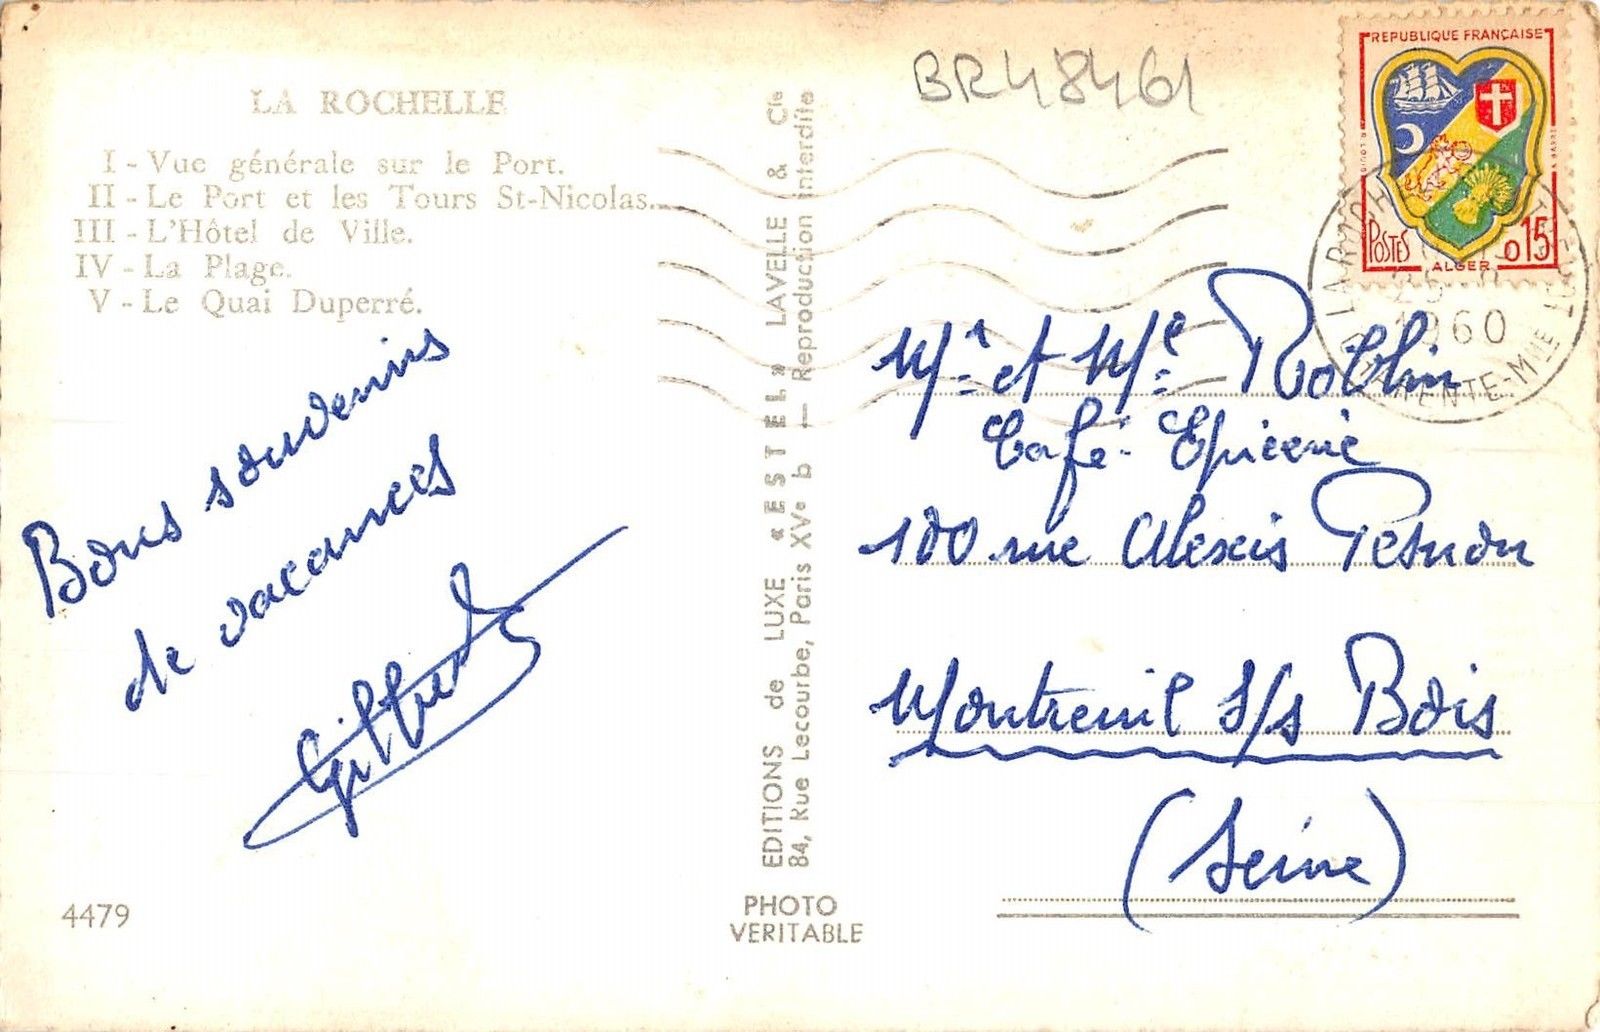 LA ROCHELLE
I - Vue générale sur le Port.
II - Le Port et les Tours St-Nicolas.
III - L'Hôtel de Ville.
IV - La Plage.
V - Le Quai Duperré.
Bons souvenirs
de vacances
4479
EDITIONS de LUXE « ESTEL » LAVELLE & Cie
84, Rue Lecourbe, Paris XVe b — Reproduction interdite
PHOTO
VERITABLE
BR48461
REPUBLIQUE FRANÇAISE
POSTES
0,15
ALGER
LA ROCHELLE
1960
CHARENTE-MME
Mr et Me Roblin
Café-Epicerie
100 rue Alexis Pesnon
Montreuil s/s Bois
(Seine)